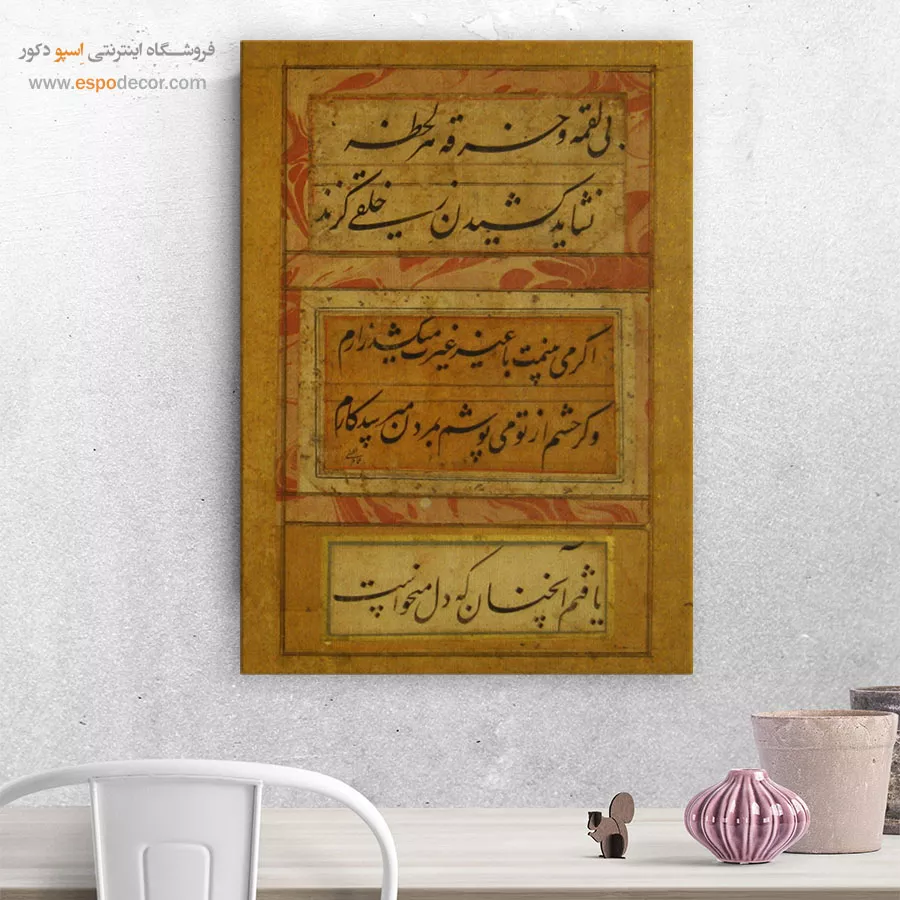 فروشگاه اینترنتی اسپو دکور
www.espodecor.com
پی لقمه و خرقه هر لحظه
نشاید کشیدن ز خلقی گزند
اگر می بینمت با غیر غیرت میکشد زارم
وگر چشم از تو می پوشم بمردن میرسد کارم
یافتم آنچنان که دل میخواست